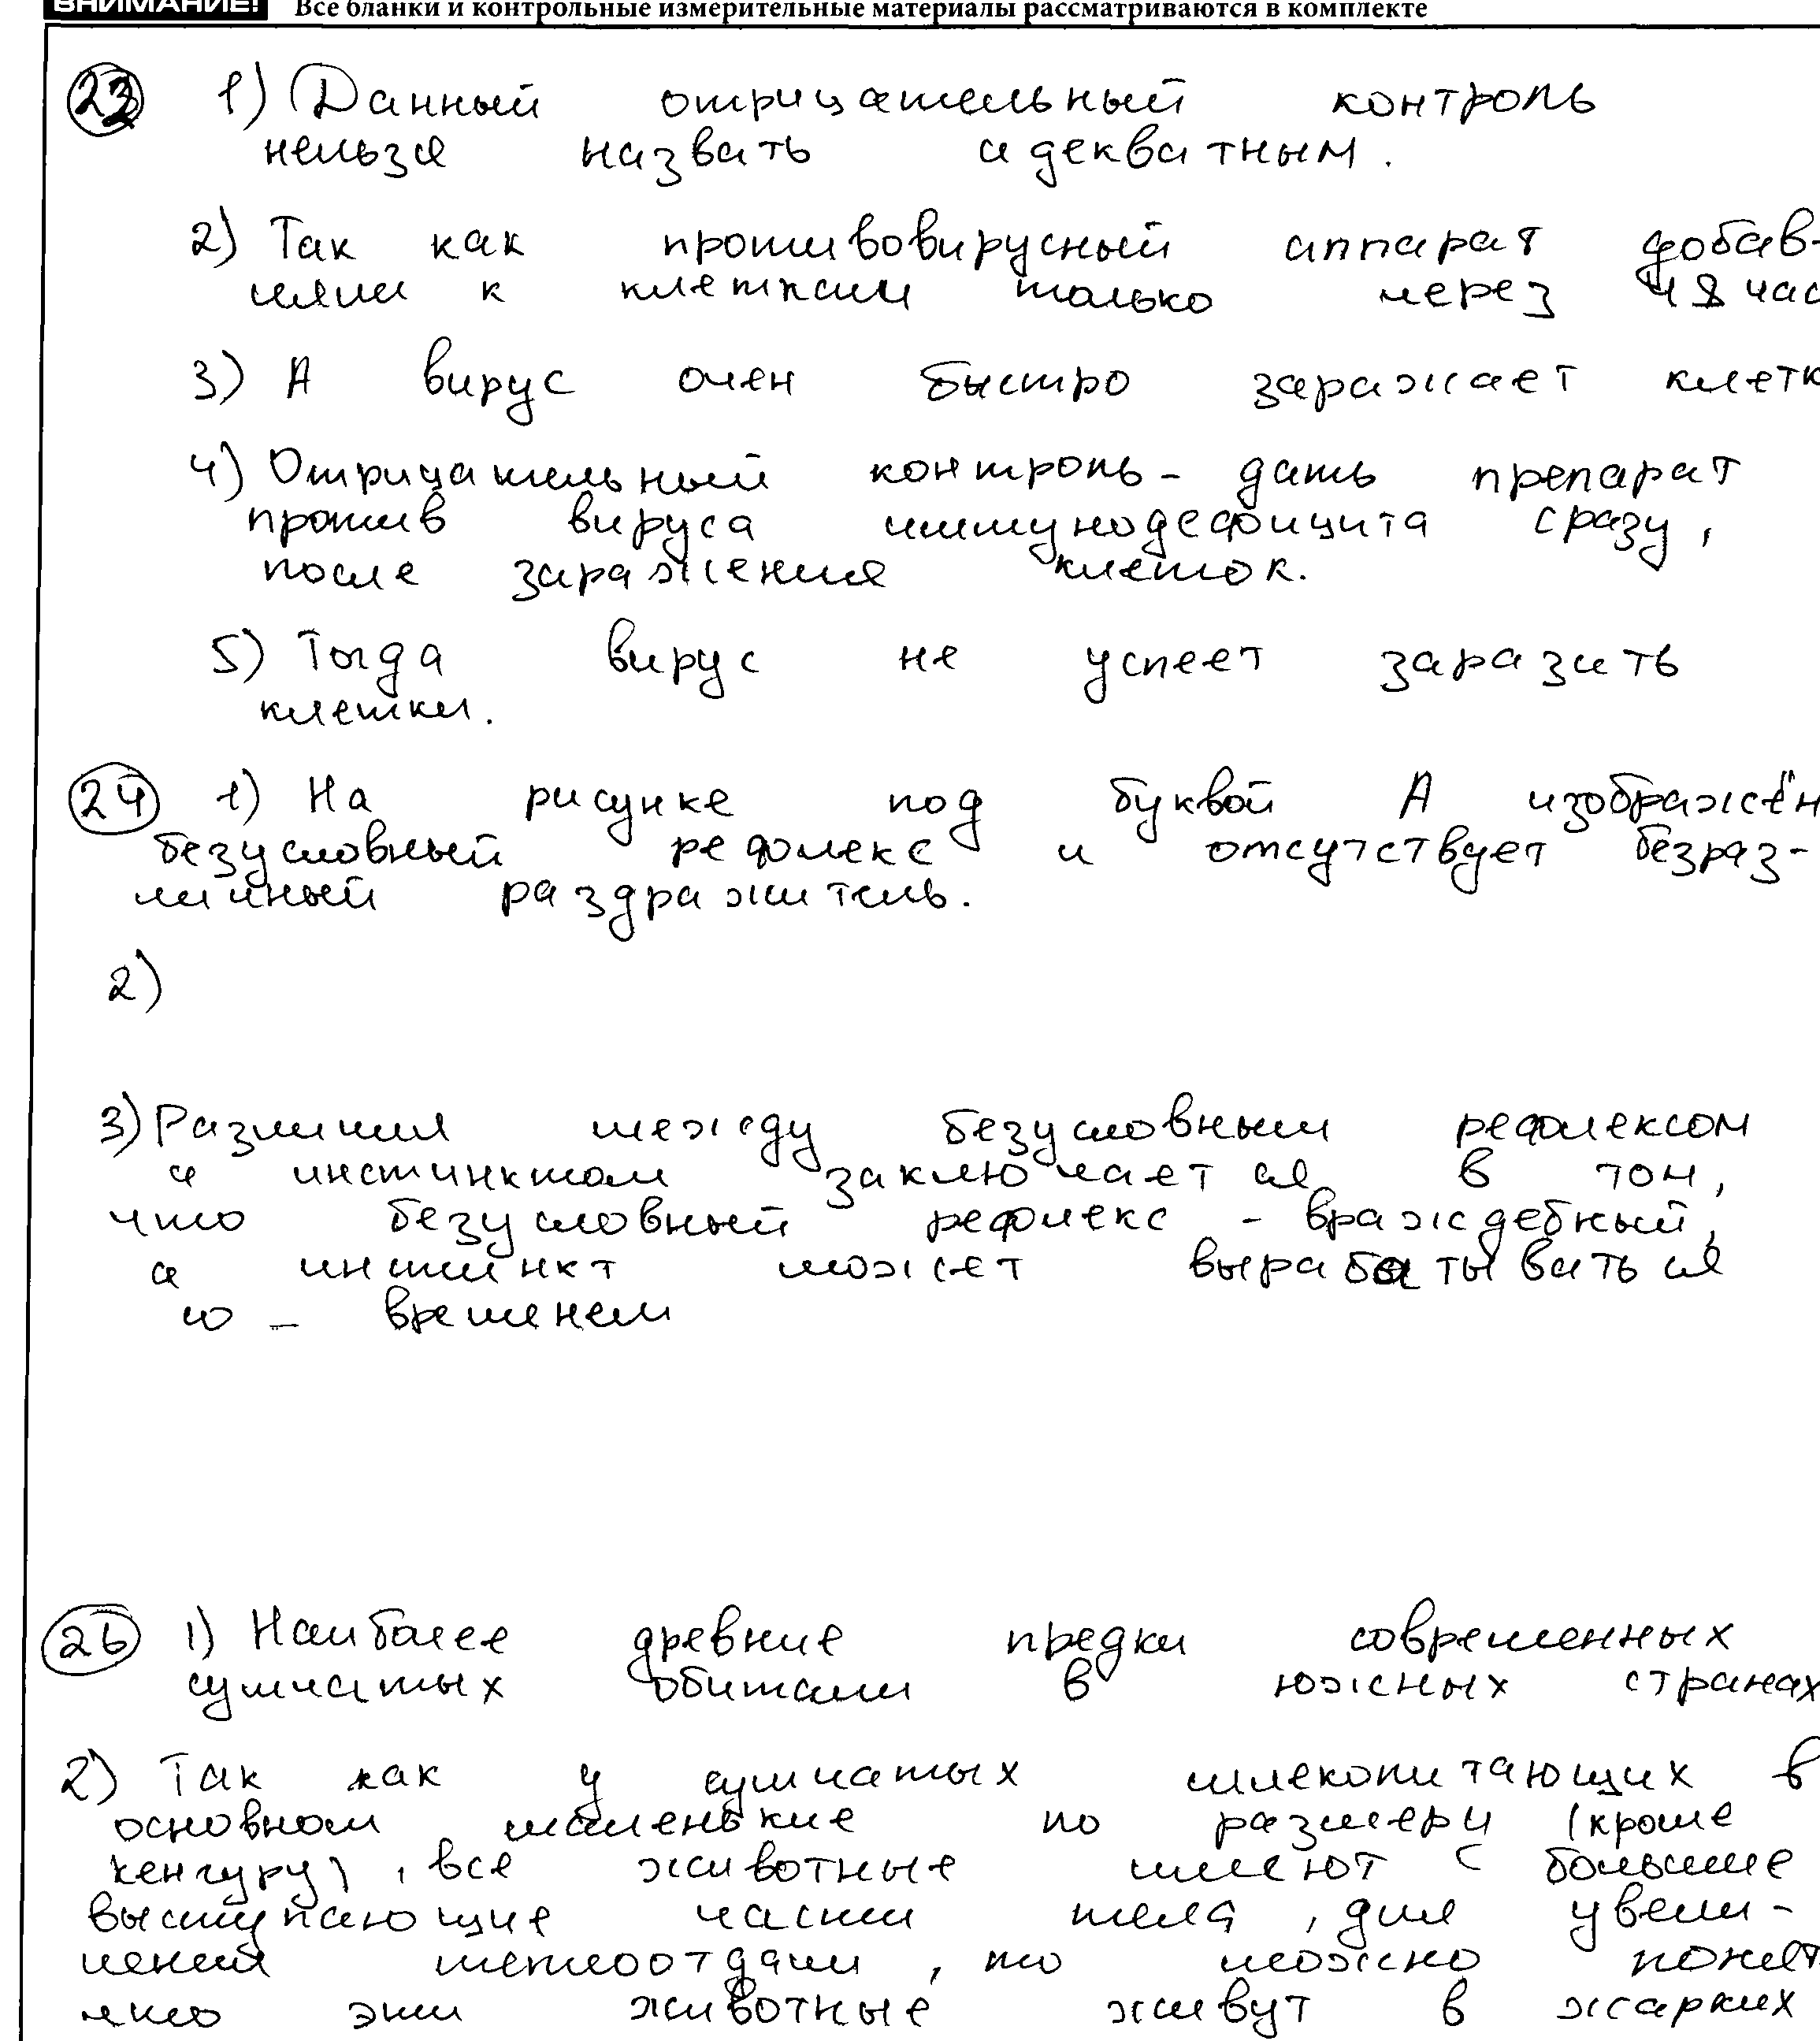 ВНИМАНИЕ! Все бланки и контрольные измерительные материалы рассматриваются в комплекте
23 1) Данный отрицательный контроль
нельзя назвать адекватным.
2) Так как противовирусный аппарат добав-
ляли к клеткам только через 48 час
3) А вирус очен быстро заражает клетк
4) Отрицательный контроль - дать препарат
против вируса иммунодефицита сразу,
после заражения клеток.
5) Тогда вирус не успеет заразить
клетки.
24 1) На рисунке под буквой А изображён
безусловный рефлекс и отсутствует безраз-
личный раздражитель.
2)
3) Различия между безусловным рефлексом
и инстинктом заключается в том,
что безусловный рефлекс - враждебный,
а инстинкт может вырабатываться
со - временем
26 1) Наиболее древние предки современных
сумчатых обитали в южных странах
2) Так как у сумчатых млекопитающих в
основном маленькие по размеру (кроме
кенгуру), все животные имеют большие
выступающие части тела, для увели-
чений теплоотдачи, то можно понят
что эти животные живут в жарких